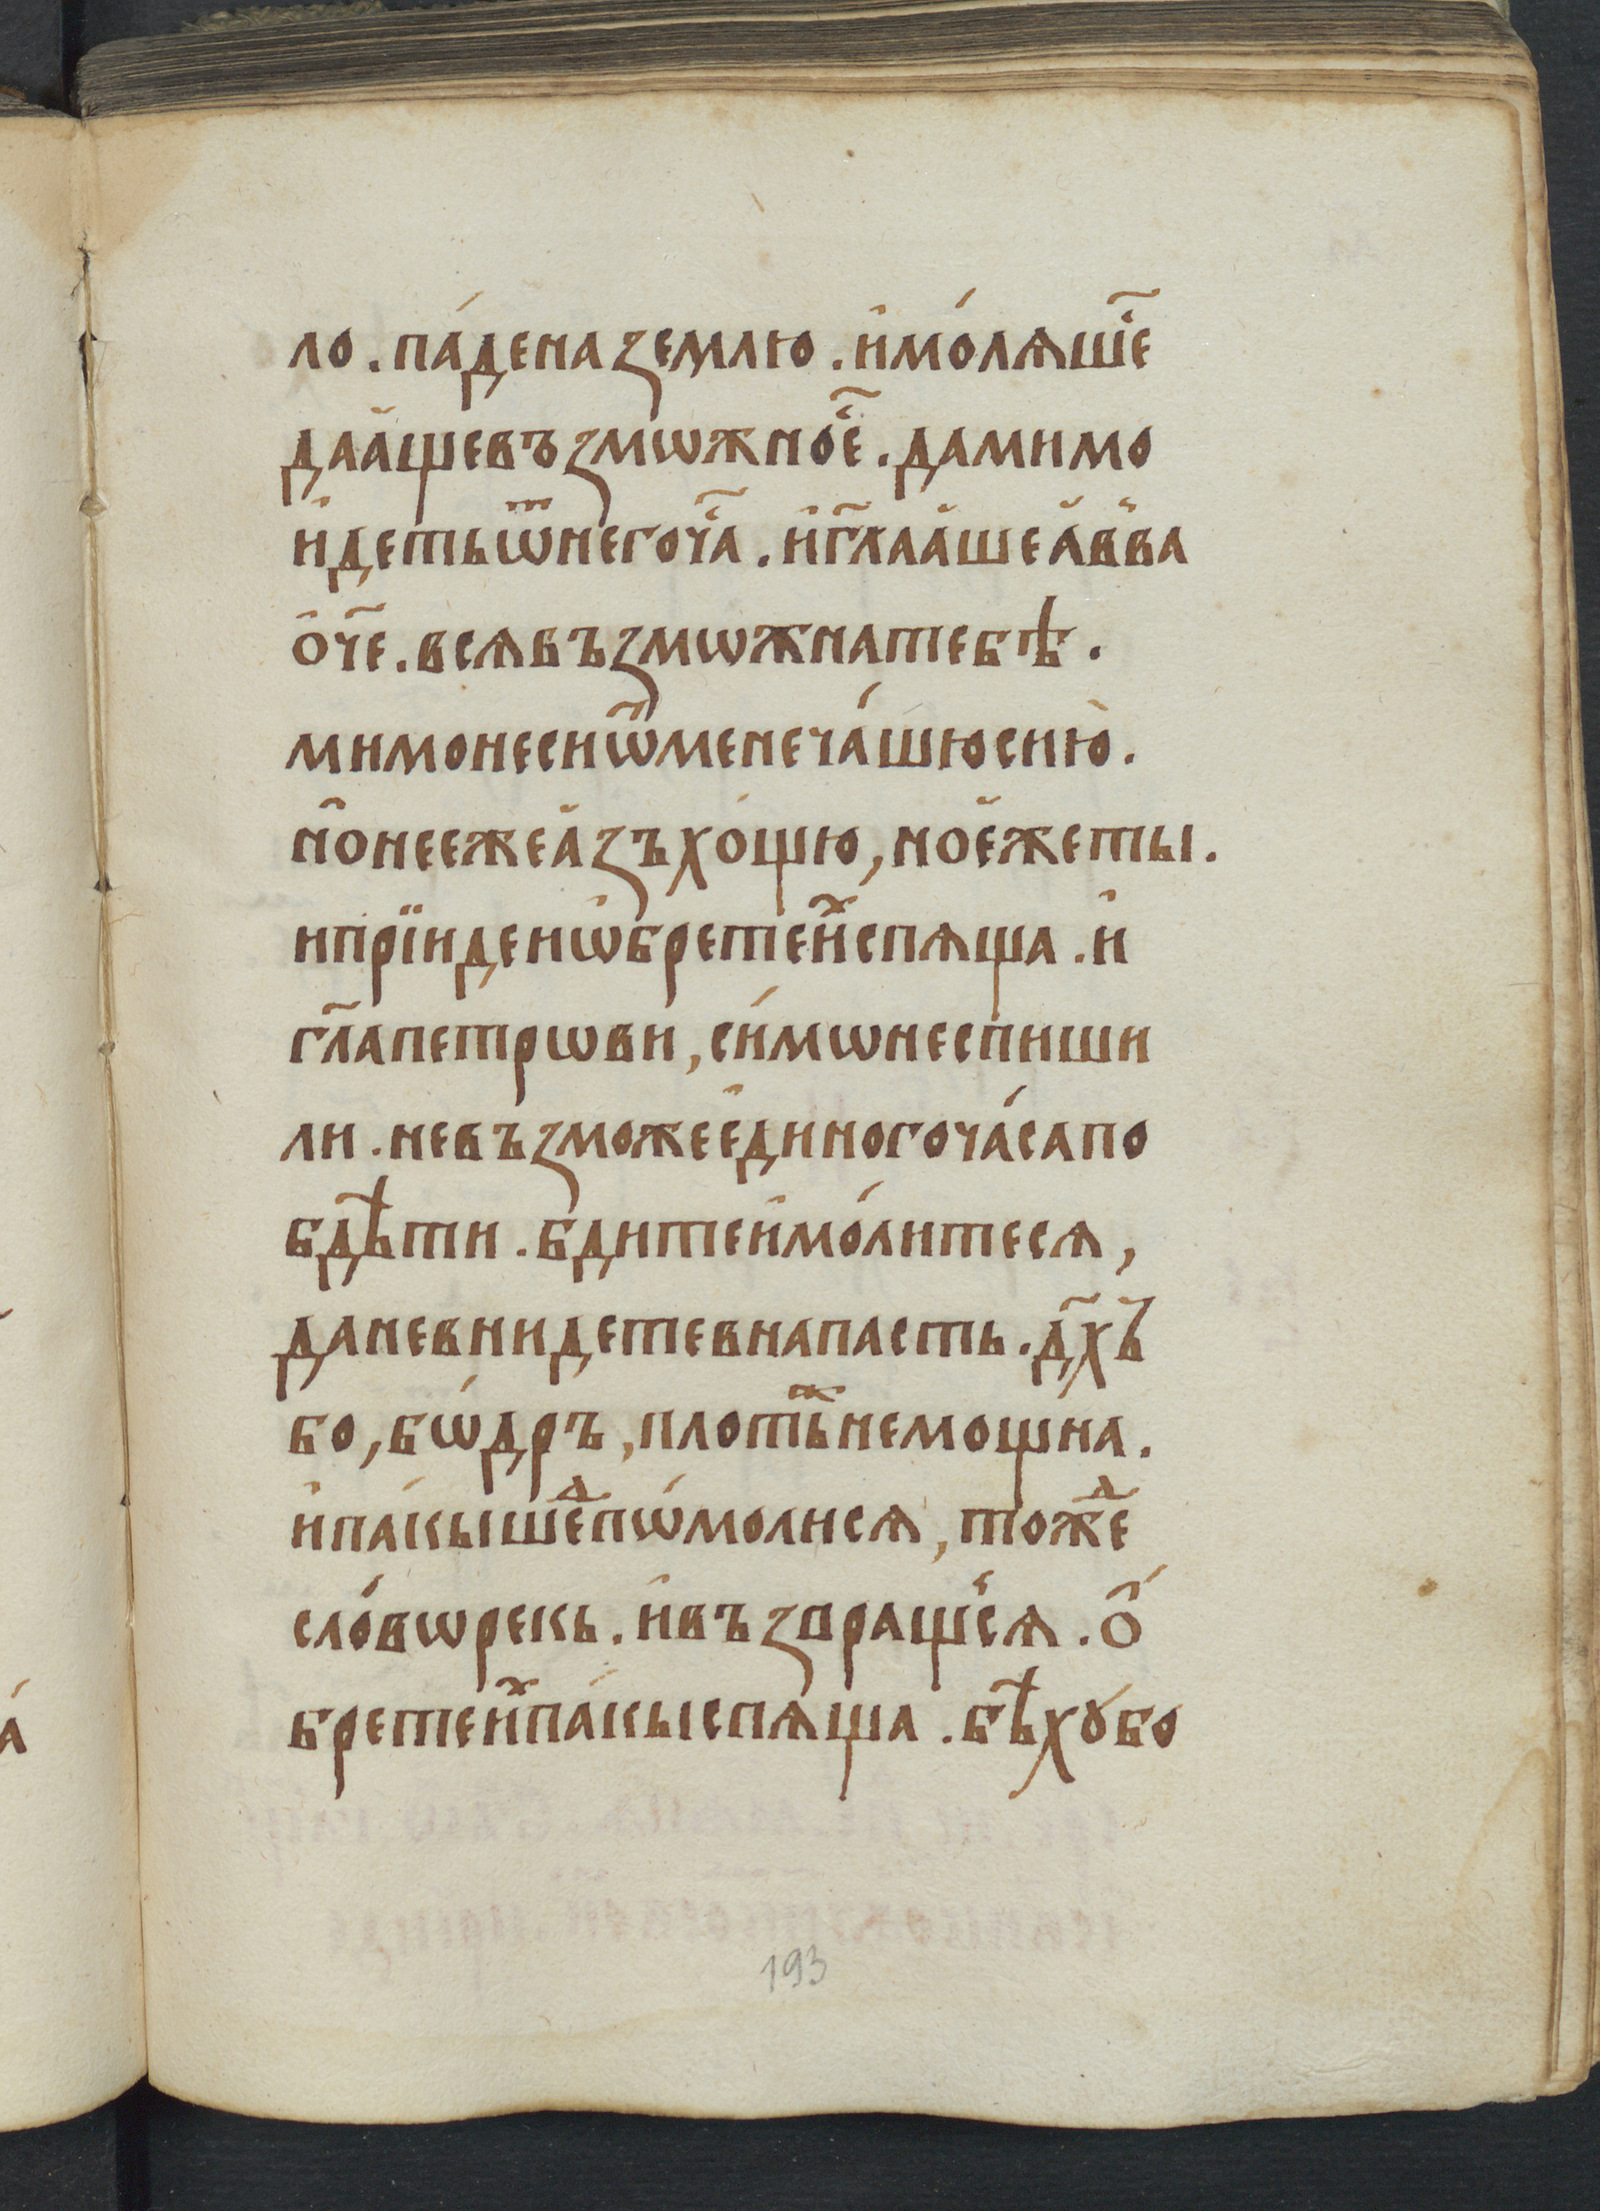 ло. па́деназемлю. и҆мо́лѧше҃
даа҆щевъзмѡжно҆е҃. дамимо
и҆детьѿнегоч҃а. и҆гл҃аа҆шеа҆в̾ва
ѻ҆ч҃е. всѧвъзмѡжнатебѣ.
мимонесиѿменеча́шюсию̀.
н҆онеежеа҆зъхо́щю, ное҆жеты.
ипрїидеиѡ҆бретеи҆хспѧща. и҆
гл҃апетрѡви, си́мѡнеспиши
ли. невъзможее҆диногоча́сапо
бдѣти. бдитеи҆мо́литесѧ,
даневнидетевнапасть. дх҃ъ
бо, бѡ́дръ, плотьжнемощна.
и҆па́кышедпѡ́молисѧ, тождⷷе
сло́вѡрекь. и҆възвращьсѧ. ѻ҆́
бретеи҆хпа́кыспѧща. бѣхꙋбо
193